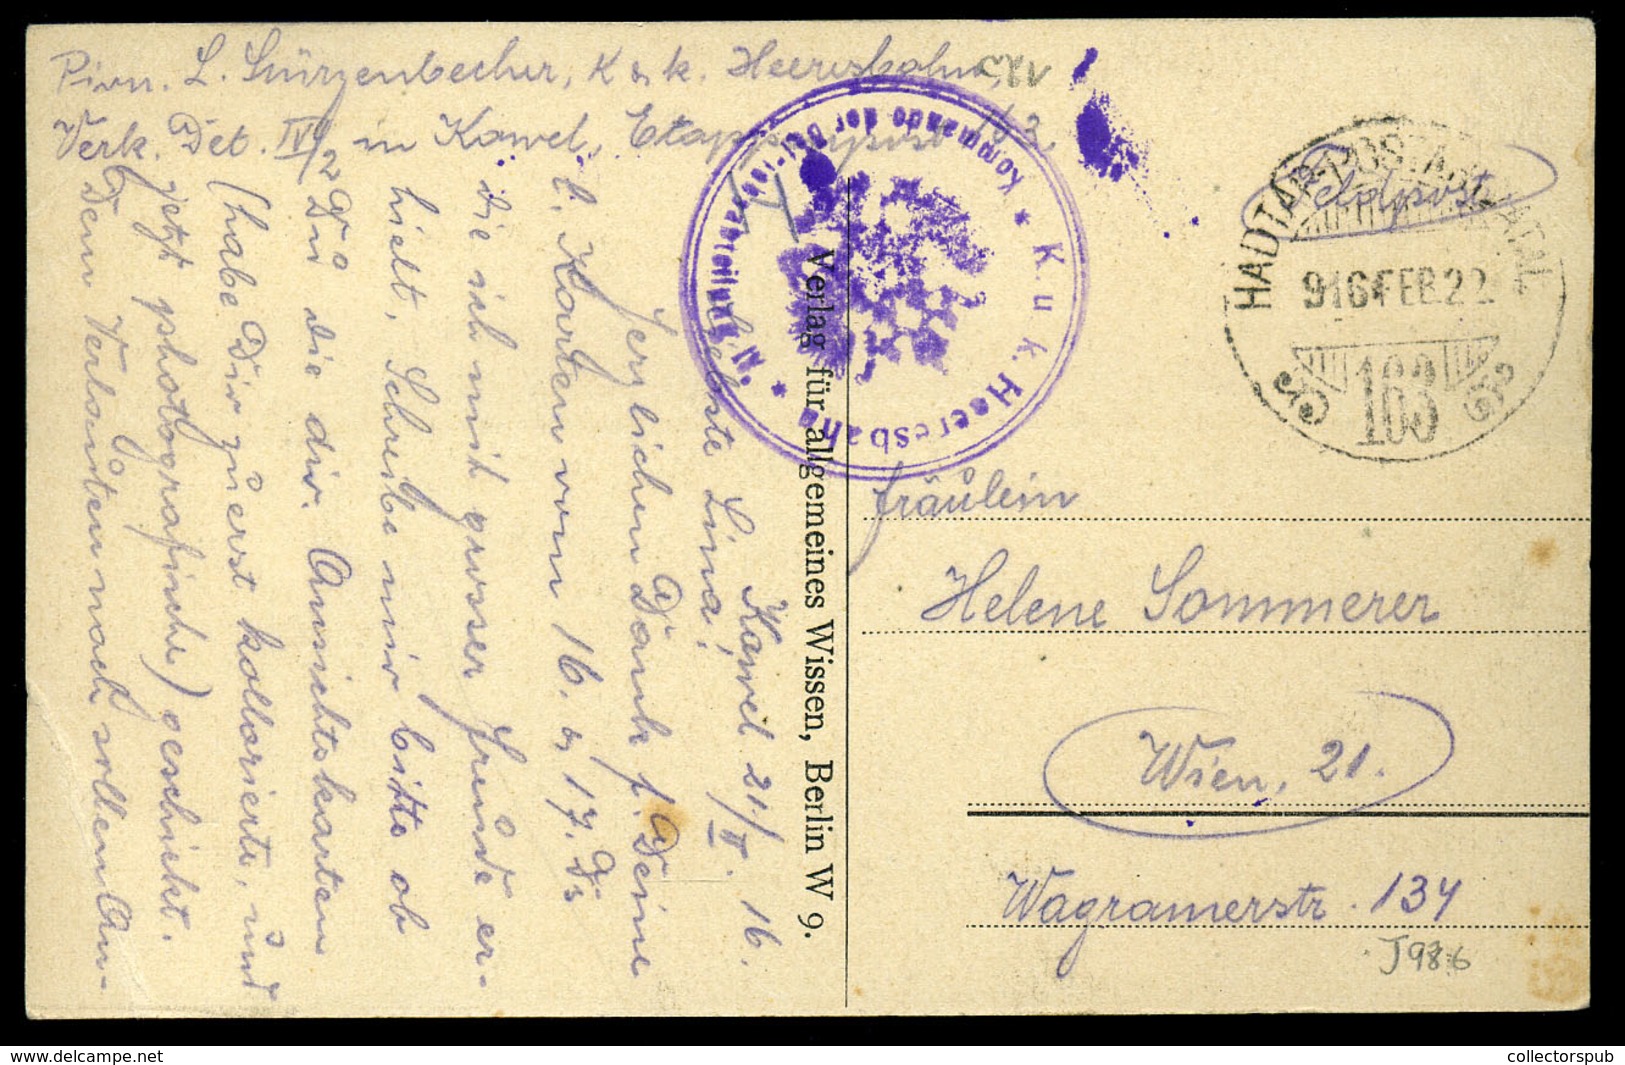 Pion. L. Stürzenbecher, K & k. Heeresbahn,
Verk. Det. IV/2 in Kowel, Etappenpost 163.
125
Kowel 21/II. 16.
Liebste Lina!
Herzlichen Dank f. Deine
l. Karten vom 16. & 17. Ds
die ich mit grosser Freude er-
hielt, Schreibe mir bitte ob
Du die div. Ansichtskarten
(habe Dir zuerst kollorierte, und
jetzt photografische) geschickt.
Dem Verlanten nach sollen An-
Verlag für allgemeines Wissen, Berlin W 9.
K. u. k. Heeresbahn
Kommando der
Feldpost
HADTÁP-POSTAHIVATAL
916 FEB 22
163
Fräulein
Helene Sommerer
Wien, 21.
Wagramerstr. 134
J986
collectorspub
www.delcampe.net